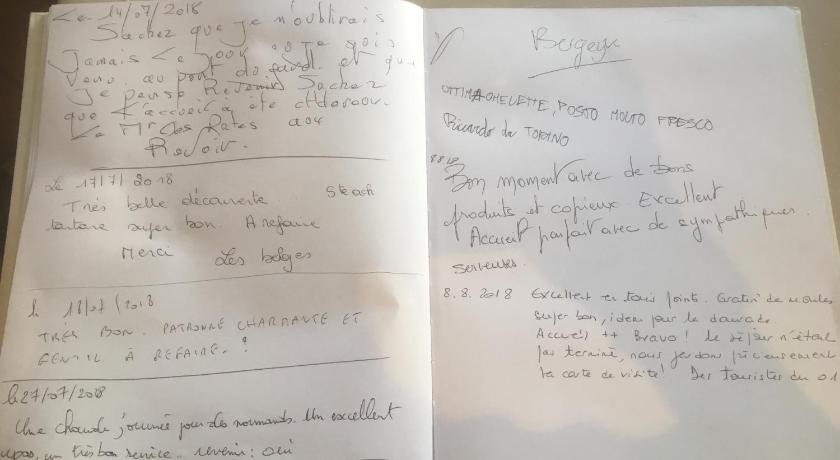 Le 14/07/2018
Sachez que je n'oublirais
Jamais Le Jour où Je suis
Venu au pont du et que
Je pense Revenir Sachez
que L'accueil à été
Le Mr des Rates aou
Revoir.
Le 17/7/2018
Très belle découverte Steack
tartare super bon. A refaire
Merci Les belges
le 18/07/2018
TRÈS BON. PATRONNE CHARMANTE ET
GENTIL À REFAIRE. ?
le 27/07/2018
Une chaude journée pour des normands. Un excellent
repas, un très bon service.. revenir: oui
OTTIMA OMELETTE, POSTO MOLTO FRESCO
Riccardo da TORINO
8 8 18
Bon moment avec de bons
produits et copieux. Excellent
Accueil parfait avec de sympathiques
serveuses.
8.8.2018 Excellent en tous points. Gratin de moules
super bon, idem pour la daurade.
Accueil ++ Bravo! Le séjour n'étant
pas terminé, nous gardons précieusement
la carte de visite! Des touristes du 01